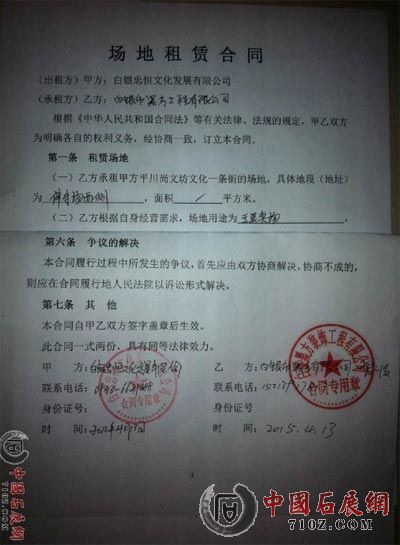 场地租赁合同
(出租方)甲方：白银忠恒文化发展有限公司
(承租方)乙方：白银市
根据《中华人民共和国合同法》等有关法律、法规的规定，甲乙双方
为明确各自的权利义务，经协商一致，订立本合同。
第一条 租赁场地
(一)乙方承租甲方平川尚文坊文化一条街的场地，具体地段(地址)
为 ，面积 / 平方米。
(二)乙方根据自身经营需求，场地用途为
第六条 争议的解决
本合同履行过程中所发生的争议，首先应由双方协商解决，协商不成的，
则应在合同履行地人民法院以诉讼形式解决。
第七条 其 他
本合同自甲乙双方签字盖章后生效。
此合同一式两份，具有同等法律效力。
甲 方： 乙 方：
联系电话： 联系电话：
身份证号： 身份证号
时 间： 时 间：2015.4.13
合同专用章
合同专用章
中國石展網
710Z.COM
中國石展網
710Z.COM